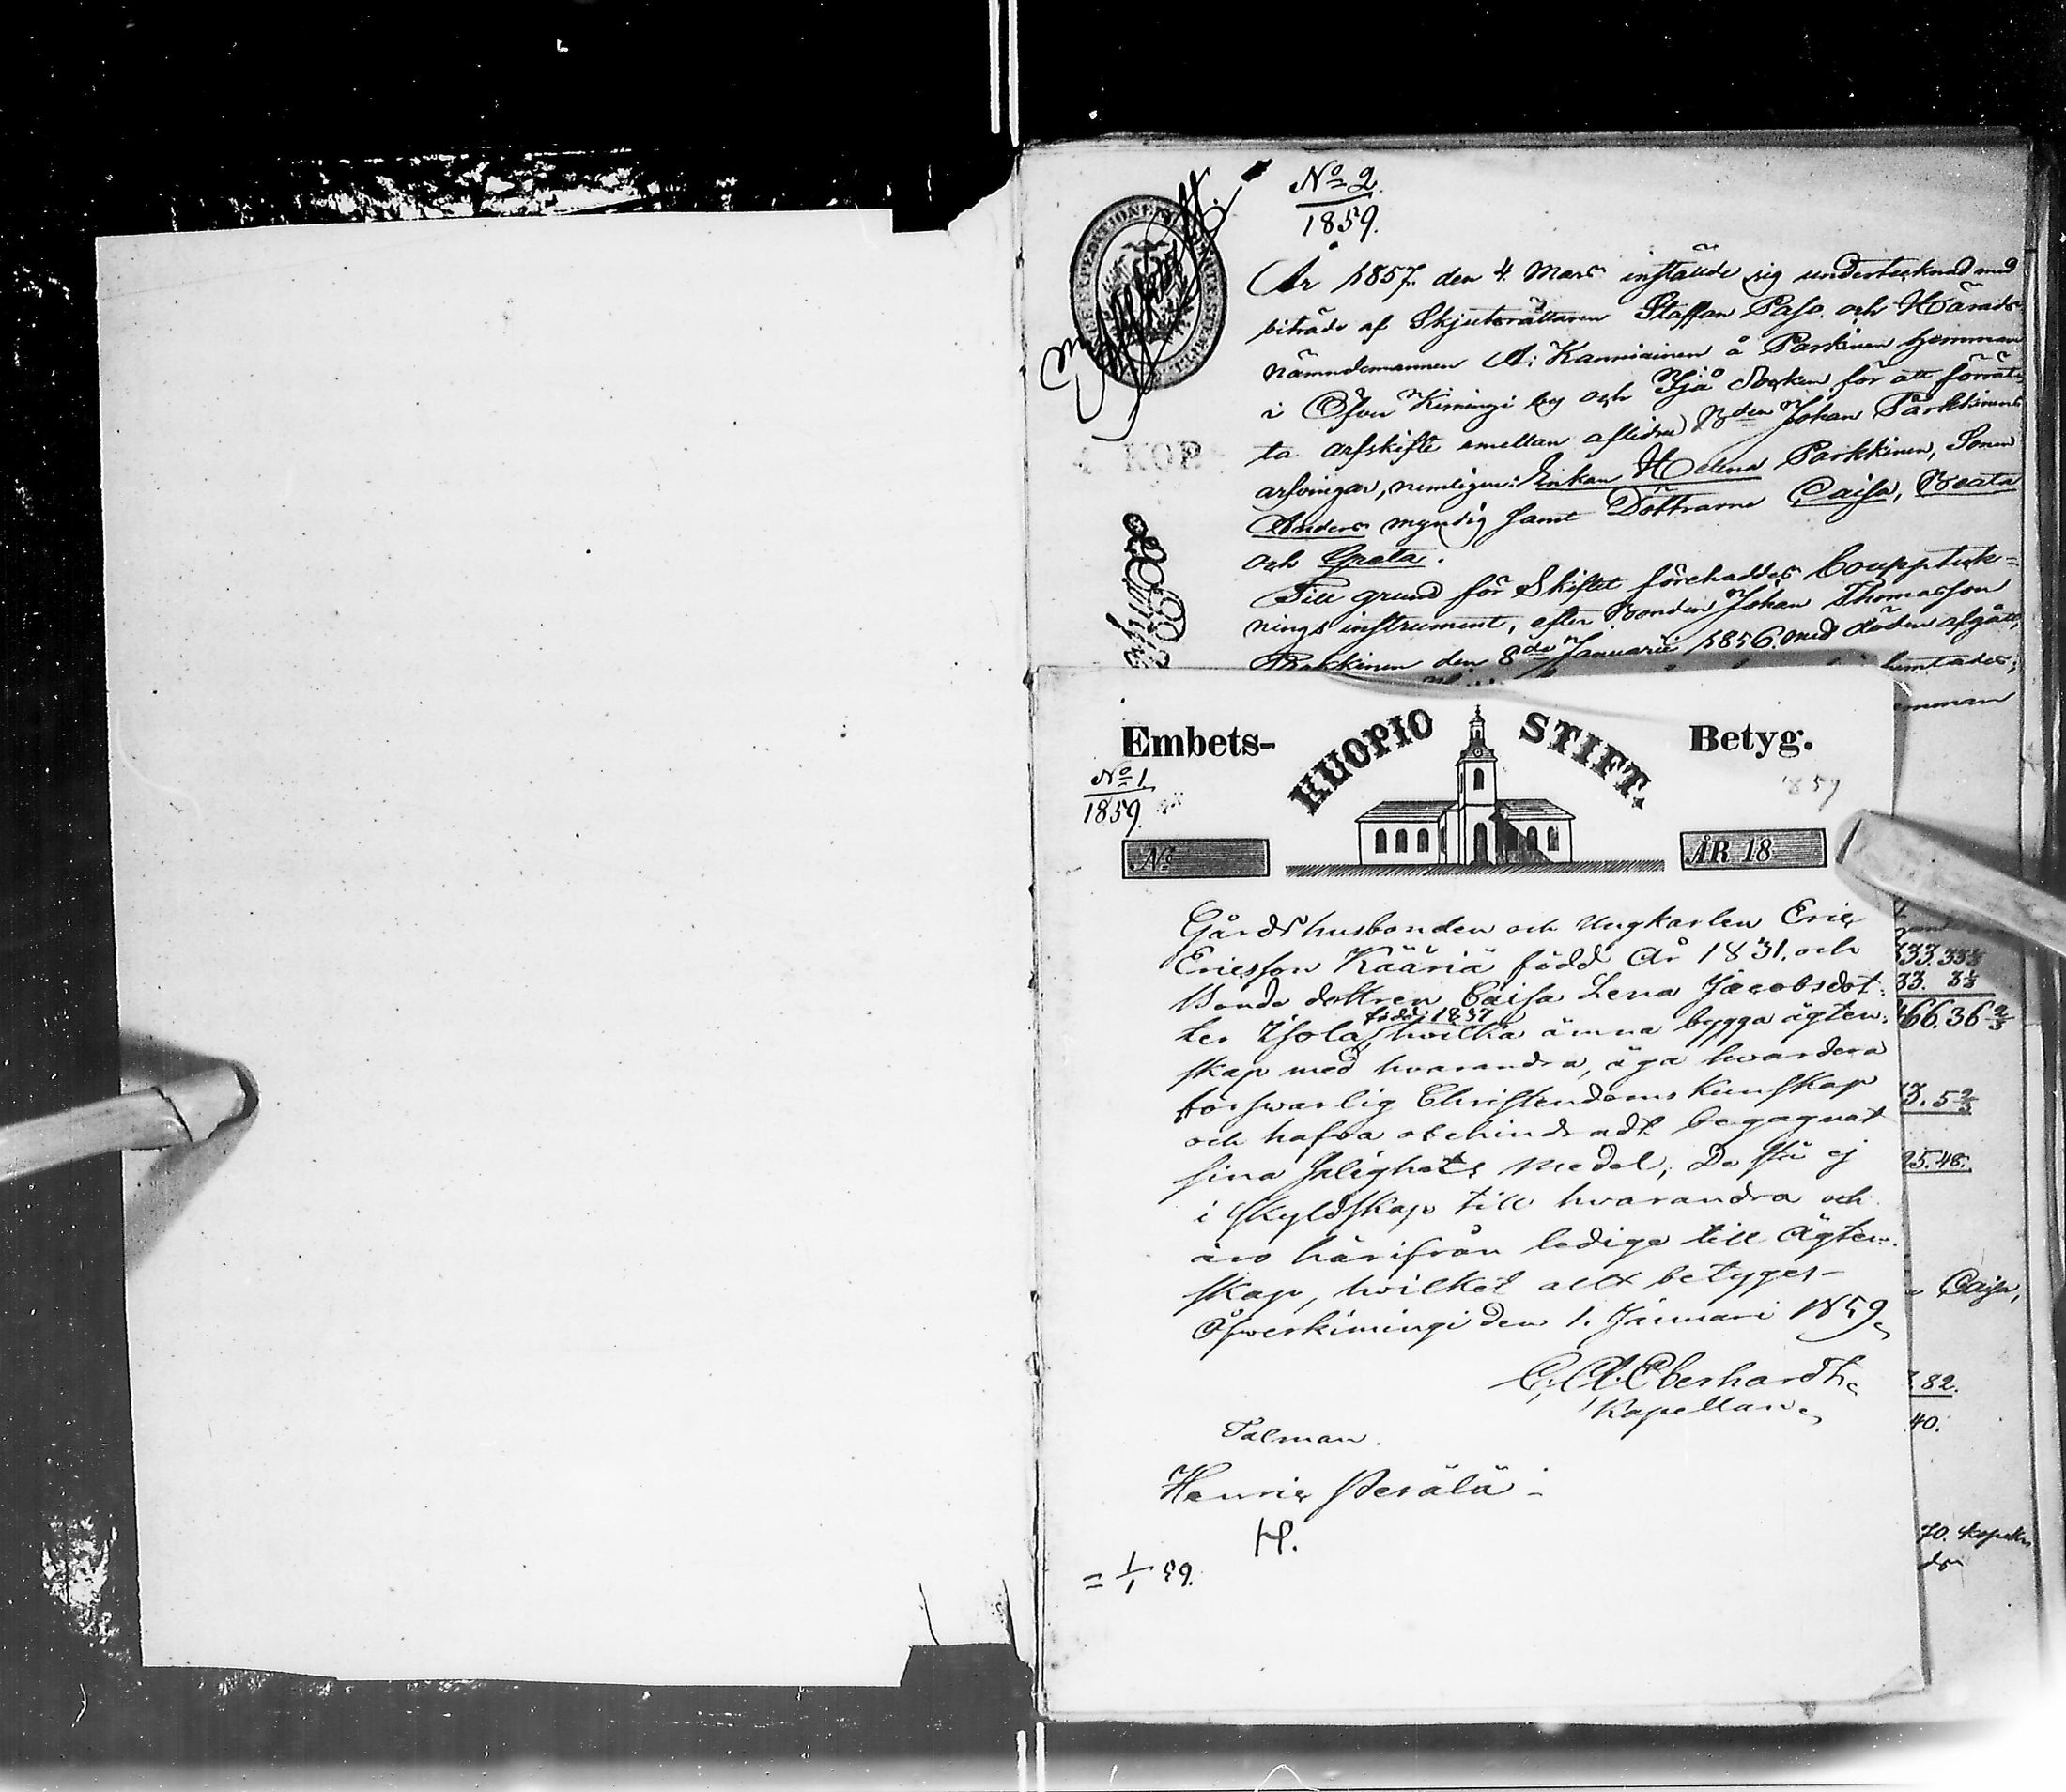 No 2.
1859.
År 1857. den 4. Mars inställde sig undertecknad med
biträde af Skjutsrättaren Staffan Paso och Härads
nämndemannen A: Kanniainen å Parkinen hemman
i Öfver Kimingi by och Ijå Socken för att förrät-
ta arfskifte emellan aflidne Bden Johan Parkkinens
arfvingar, nemligen: Enkan Helena Parkkinen, Sonen
Anders myndig samt Döttrarne Caisa, Beata
och Greta.
Till grund för Skiftet förehades Boupptek-
nings instrument, efter Bonden Johan Thomasson
Parkkinen den 8de Januarii 1856 med döden afgått,
hemman
Embets-
KUOPIO STIFT.
Betyg.
No 1
1859.
1859
No
ÅR 18
Gårdshusbonden och Ungkarlen Eric
Ericsson Kääriä född År 1831. och
Bonde dottren Caisa Lena Jacobsdot:
född 1837
ter Isola, hvilka ämna bygga ägten:
skap med hvarandra, äga hvardera
forswarlig Christendoms Kunskap
och hafva obehindradt begagnat
sina Salighets medel; De stå ej
i skyldskap till hvarandra och
äro härifrån lediga till Ägten-
skap, hvilket allt betyges-
Öfwerkimingi den 1. Januari 1859
C. A. Eberhardt
Kapellan
Talman.
Henric Perälä -
H.
= 1/1 59.
333.33⅓
33. 3⅓
466.36⅔
3. 5⅔
95.48.
Caisa,
82.
40.
70. kopek